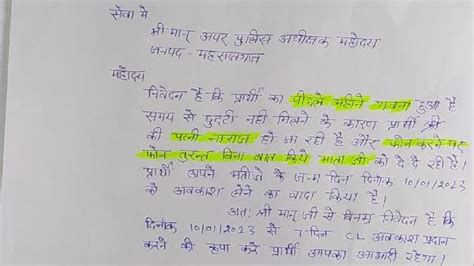 सेवा मे
श्री मान् अपर पुलिस अधीक्षक महोदय
जनपद - महराजगंज
महोदय
निवेदन है कि प्रार्थी का पीछले महीने गवना हुआ है
समय से छुट्टी नही मिलने के कारण प्रार्थी की
की पत्नी नाराज हो जा रही है और फोन करने पर
फोन तुरन्त बिना बात किये माता जी को दे दे रही है।
प्रार्थी अपने भतीजे के जन्म दिन दिनांक 10/01/2023
को अवकाश लेने का वादा किया है।
अतः श्री मान् जी से विनम्र निवेदन है कि
दिनांक 10/01/2023 से 7 दिन CL अवकाश प्रदान
करने की कृपा करे प्रार्थी आपका आभारी रहेगा।